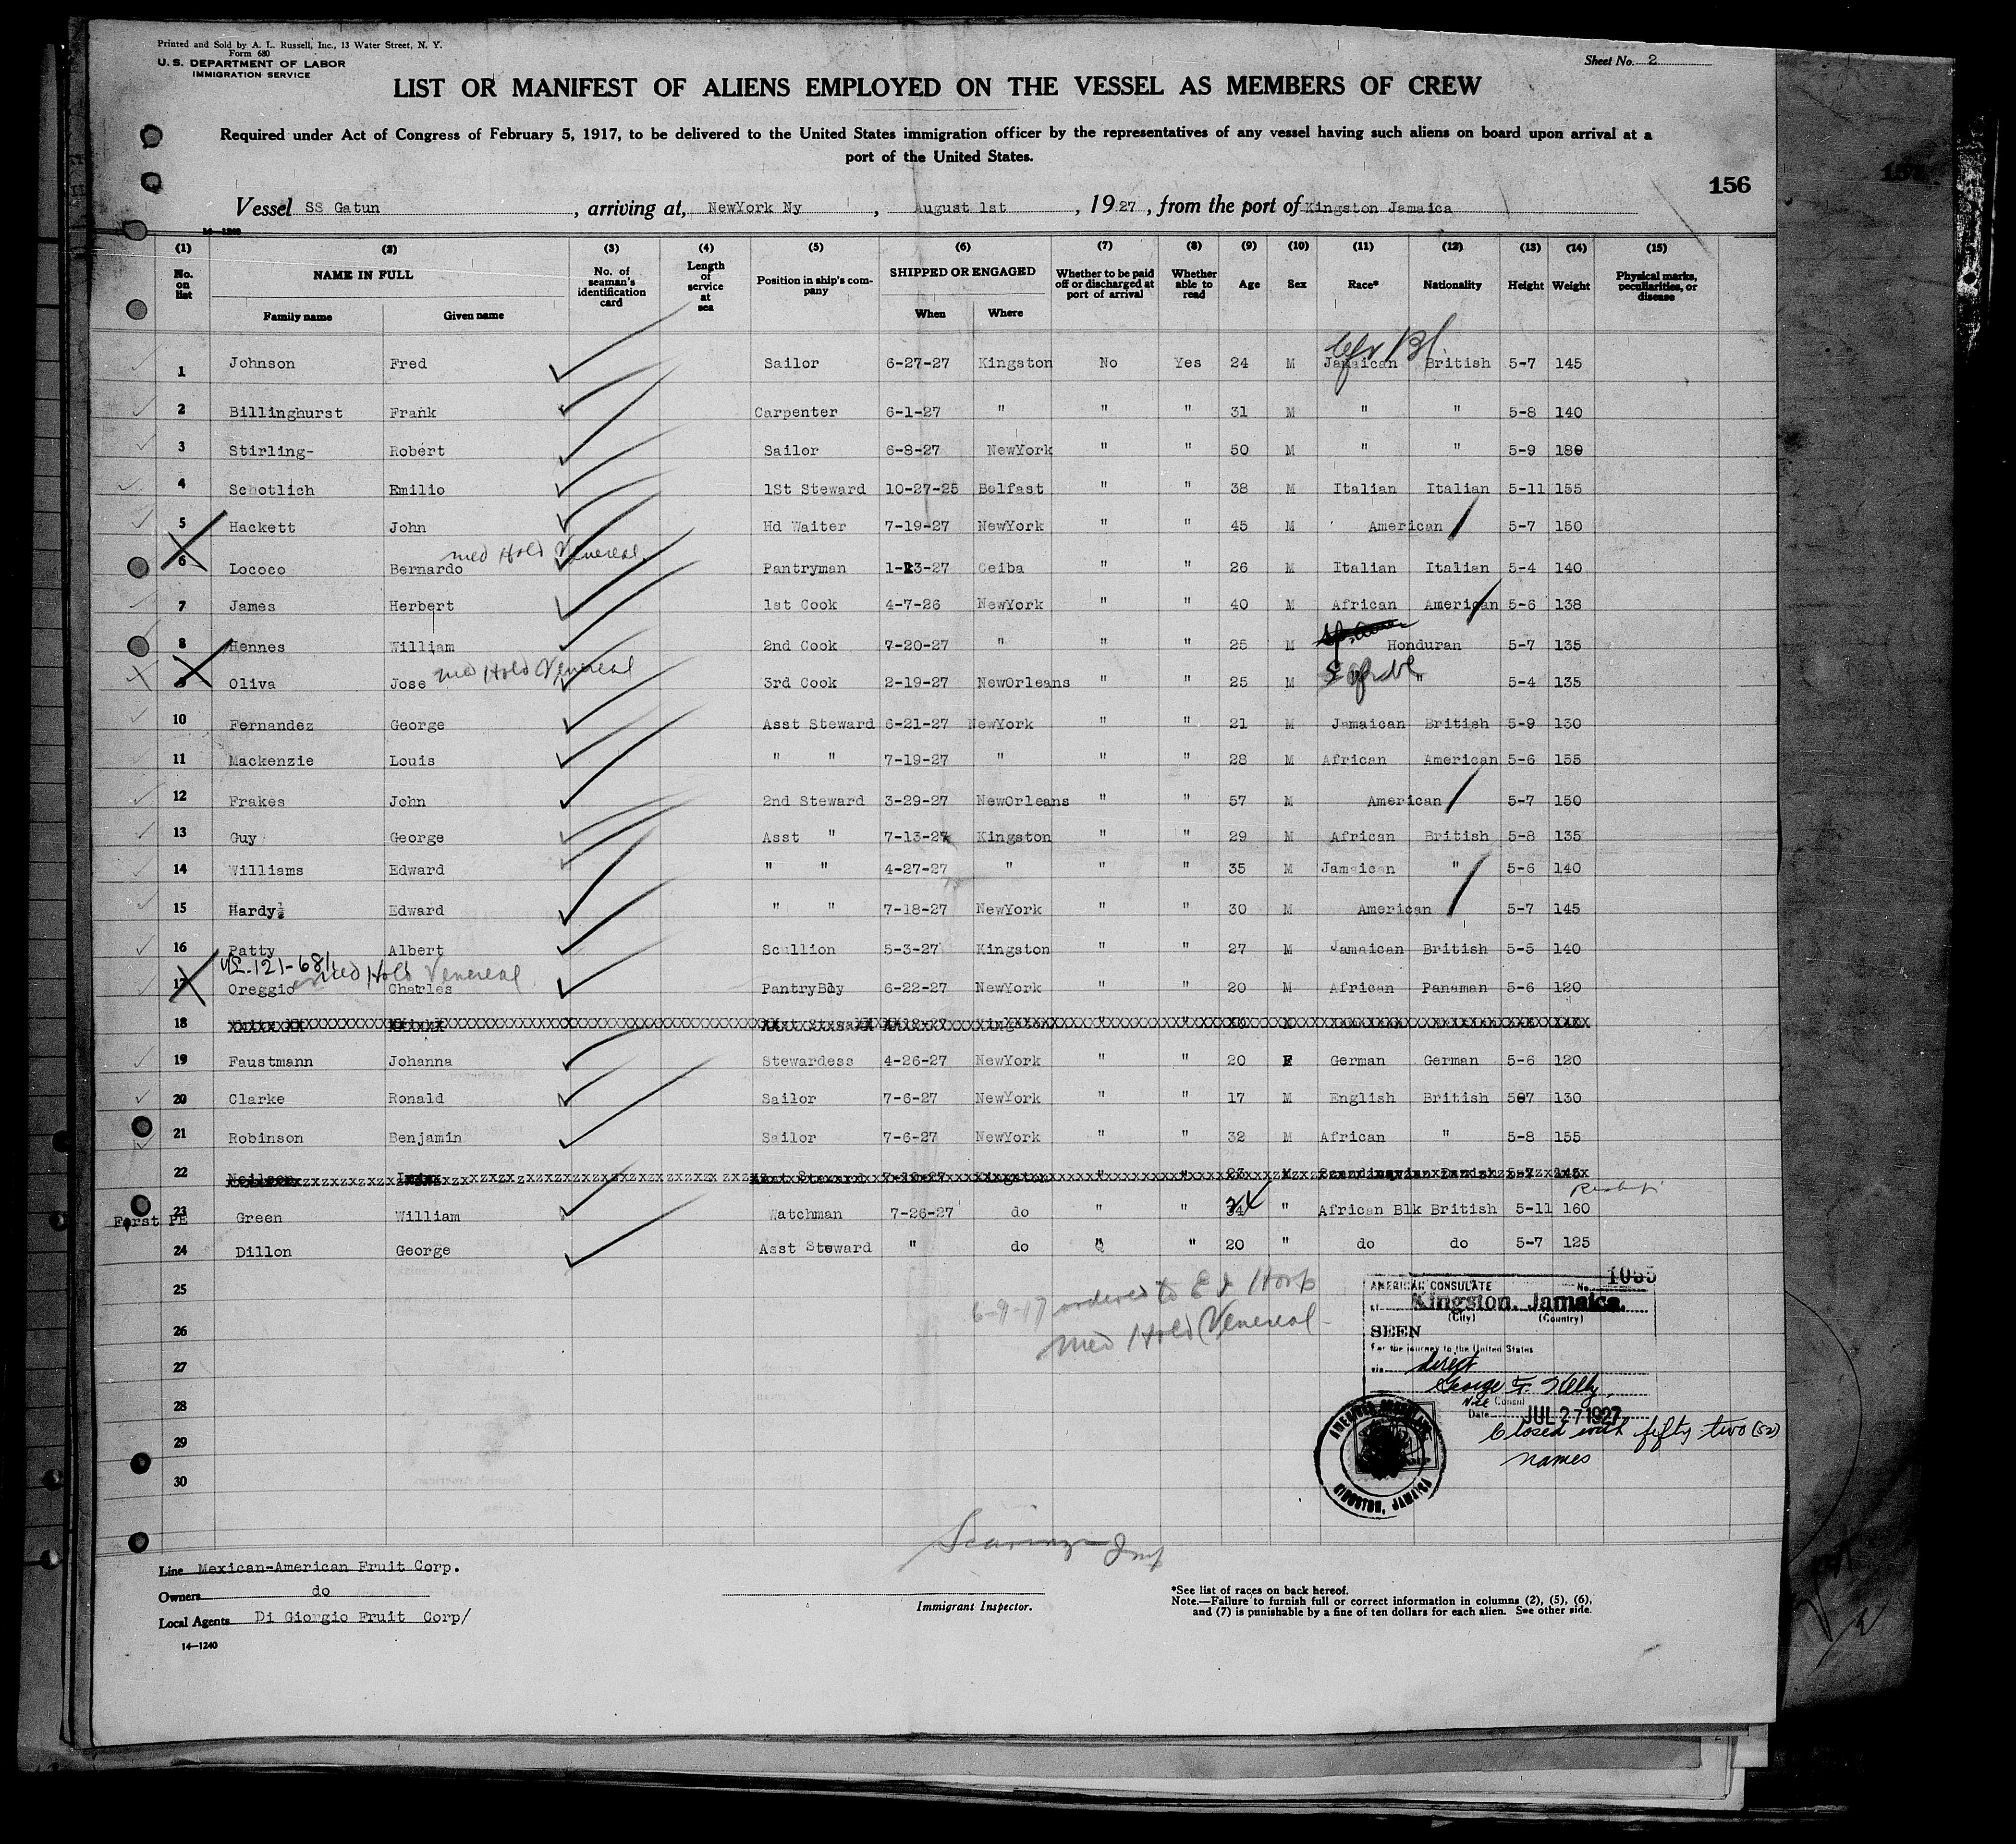 Printed and Sold by A. L. Russell, Inc., 13 Water Street, N. Y.
Form 680
U. S. DEPARTMENT OF LABOR
IMMIGRATION SERVICE
Sheet No. 2
LIST OR MANIFEST OF ALIENS EMPLOYED ON THE VESSEL AS MEMBERS OF CREW
Required under Act of Congress of February 5, 1917, to be delivered to the United States immigration officer by the representatives of any vessel having such aliens on board upon arrival at a
port of the United States.
156
Vessel SS Gatun, arriving at, NewYork Ny, August 1st, 1927, from the port of Kingston Jamaica
14—1240
(1) (2) (3) (4) (5) (6) (7) (8) (9) (10) (11) (12) (13) (14) (15)
No. on list NAME IN FULL Family name Given name No. of seaman's identification card Length of service at sea Position in ship's company SHIPPED OR ENGAGED When Where Whether to be paid off or discharged at port of arrival Whether able to read Age Sex Race* Nationality Height Weight Physical marks, peculiarities, or disease
Afr Bl
1 Johnson Fred Sailor 6-27-27 Kingston No Yes 24 M Jamaican British 5-7 145
2 Billinghurst Frank Carpenter 6-1-27 " " " 31 M " " 5-8 140
3 Stirling- Robert Sailor 6-8-27 NewYork " " 50 M " " 5-9 180
4 Schotlich Emilio 1St Steward 10-27-25 Belfast " " 38 M Italian Italian 5-11 155
5 Hackett John Hd Waiter 7-19-27 NewYork " " 45 M American 5-7 150
Med Hold Venereal
6 Lococo Bernardo Pantryman 1-23-27 Ceiba " " 26 M Italian Italian 5-4 140
7 James Herbert 1st Cook 4-7-26 NewYork " " 40 M African American 5-6 138
8 Hennes William 2nd Cook 7-20-27 " " " 25 M Honduran 5-7 135
Med Hold Venereal
9 Oliva Jose 3rd Cook 2-19-27 NewOrleans " " 25 M " 5-4 135
10 Fernandez George Asst Steward 6-21-27 NewYork " " 21 M Jamaican British 5-9 130
11 Mackenzie Louis " " 7-19-27 " " " 28 M African American 5-6 155
12 Frakes John 2nd Steward 3-29-27 NewOrleans " " 57 M American 5-7 150
13 Guy George Asst " 7-13-27 Kingston " " 29 M African British 5-8 135
14 Williams Edward " " 4-27-27 " " " 35 M Jamaican " 5-6 140
15 Hardy Edward " " 7-18-27 NewYork " " 30 M American 5-7 145
16 Patty Albert Scullion 5-3-27 Kingston " " 27 M Jamaican British 5-5 140
121-681 Med Hold Venereal
17 Oreggio Charles PantryBoy 6-22-27 NewYork " " 20 M African Panaman 5-6 120
18
19 Faustmann Johanna Stewardess 4-26-27 NewYork " " 20 F German German 5-6 120
20 Clarke Ronald Sailor 7-6-27 NewYork " " 17 M English British 507 130
21 Robinson Benjamin Sailor 7-6-27 NewYork " " 32 M African " 5-8 155
22 Neilson Asst Steward Kingston " " 23 M Scandinavian Danish 5-7 145
First PE
23 Green William Watchman 7-26-27 do " " 34 " African Blk British 5-11 160
24 Dillon George Asst Steward " do " " 20 " do do 5-7 125
25
26
27
28
29
30
6-9-17 ordered to E I Hosp
Med Hold Venereal
AMERICAN CONSULATE No. 1035
at Kingston, Jamaica.
(City) (Country)
SEEN
For the journey to the United States
via direct
George F. Kelly
Vice Consul
Date JUL 27 1927
Closed with fifty-two (52)
names
AMERICAN CONSULATE
KINGSTON, JAMAICA
Line Mexican-American Fruit Corp.
Owners do
Local Agents Di Giorgio Fruit Corp/
14—1240
Immigrant Inspector.
*See list of races on back hereof.
Note.—Failure to furnish full or correct information in columns (2), (5), (6),
and (7) is punishable by a fine of ten dollars for each alien. See other side.